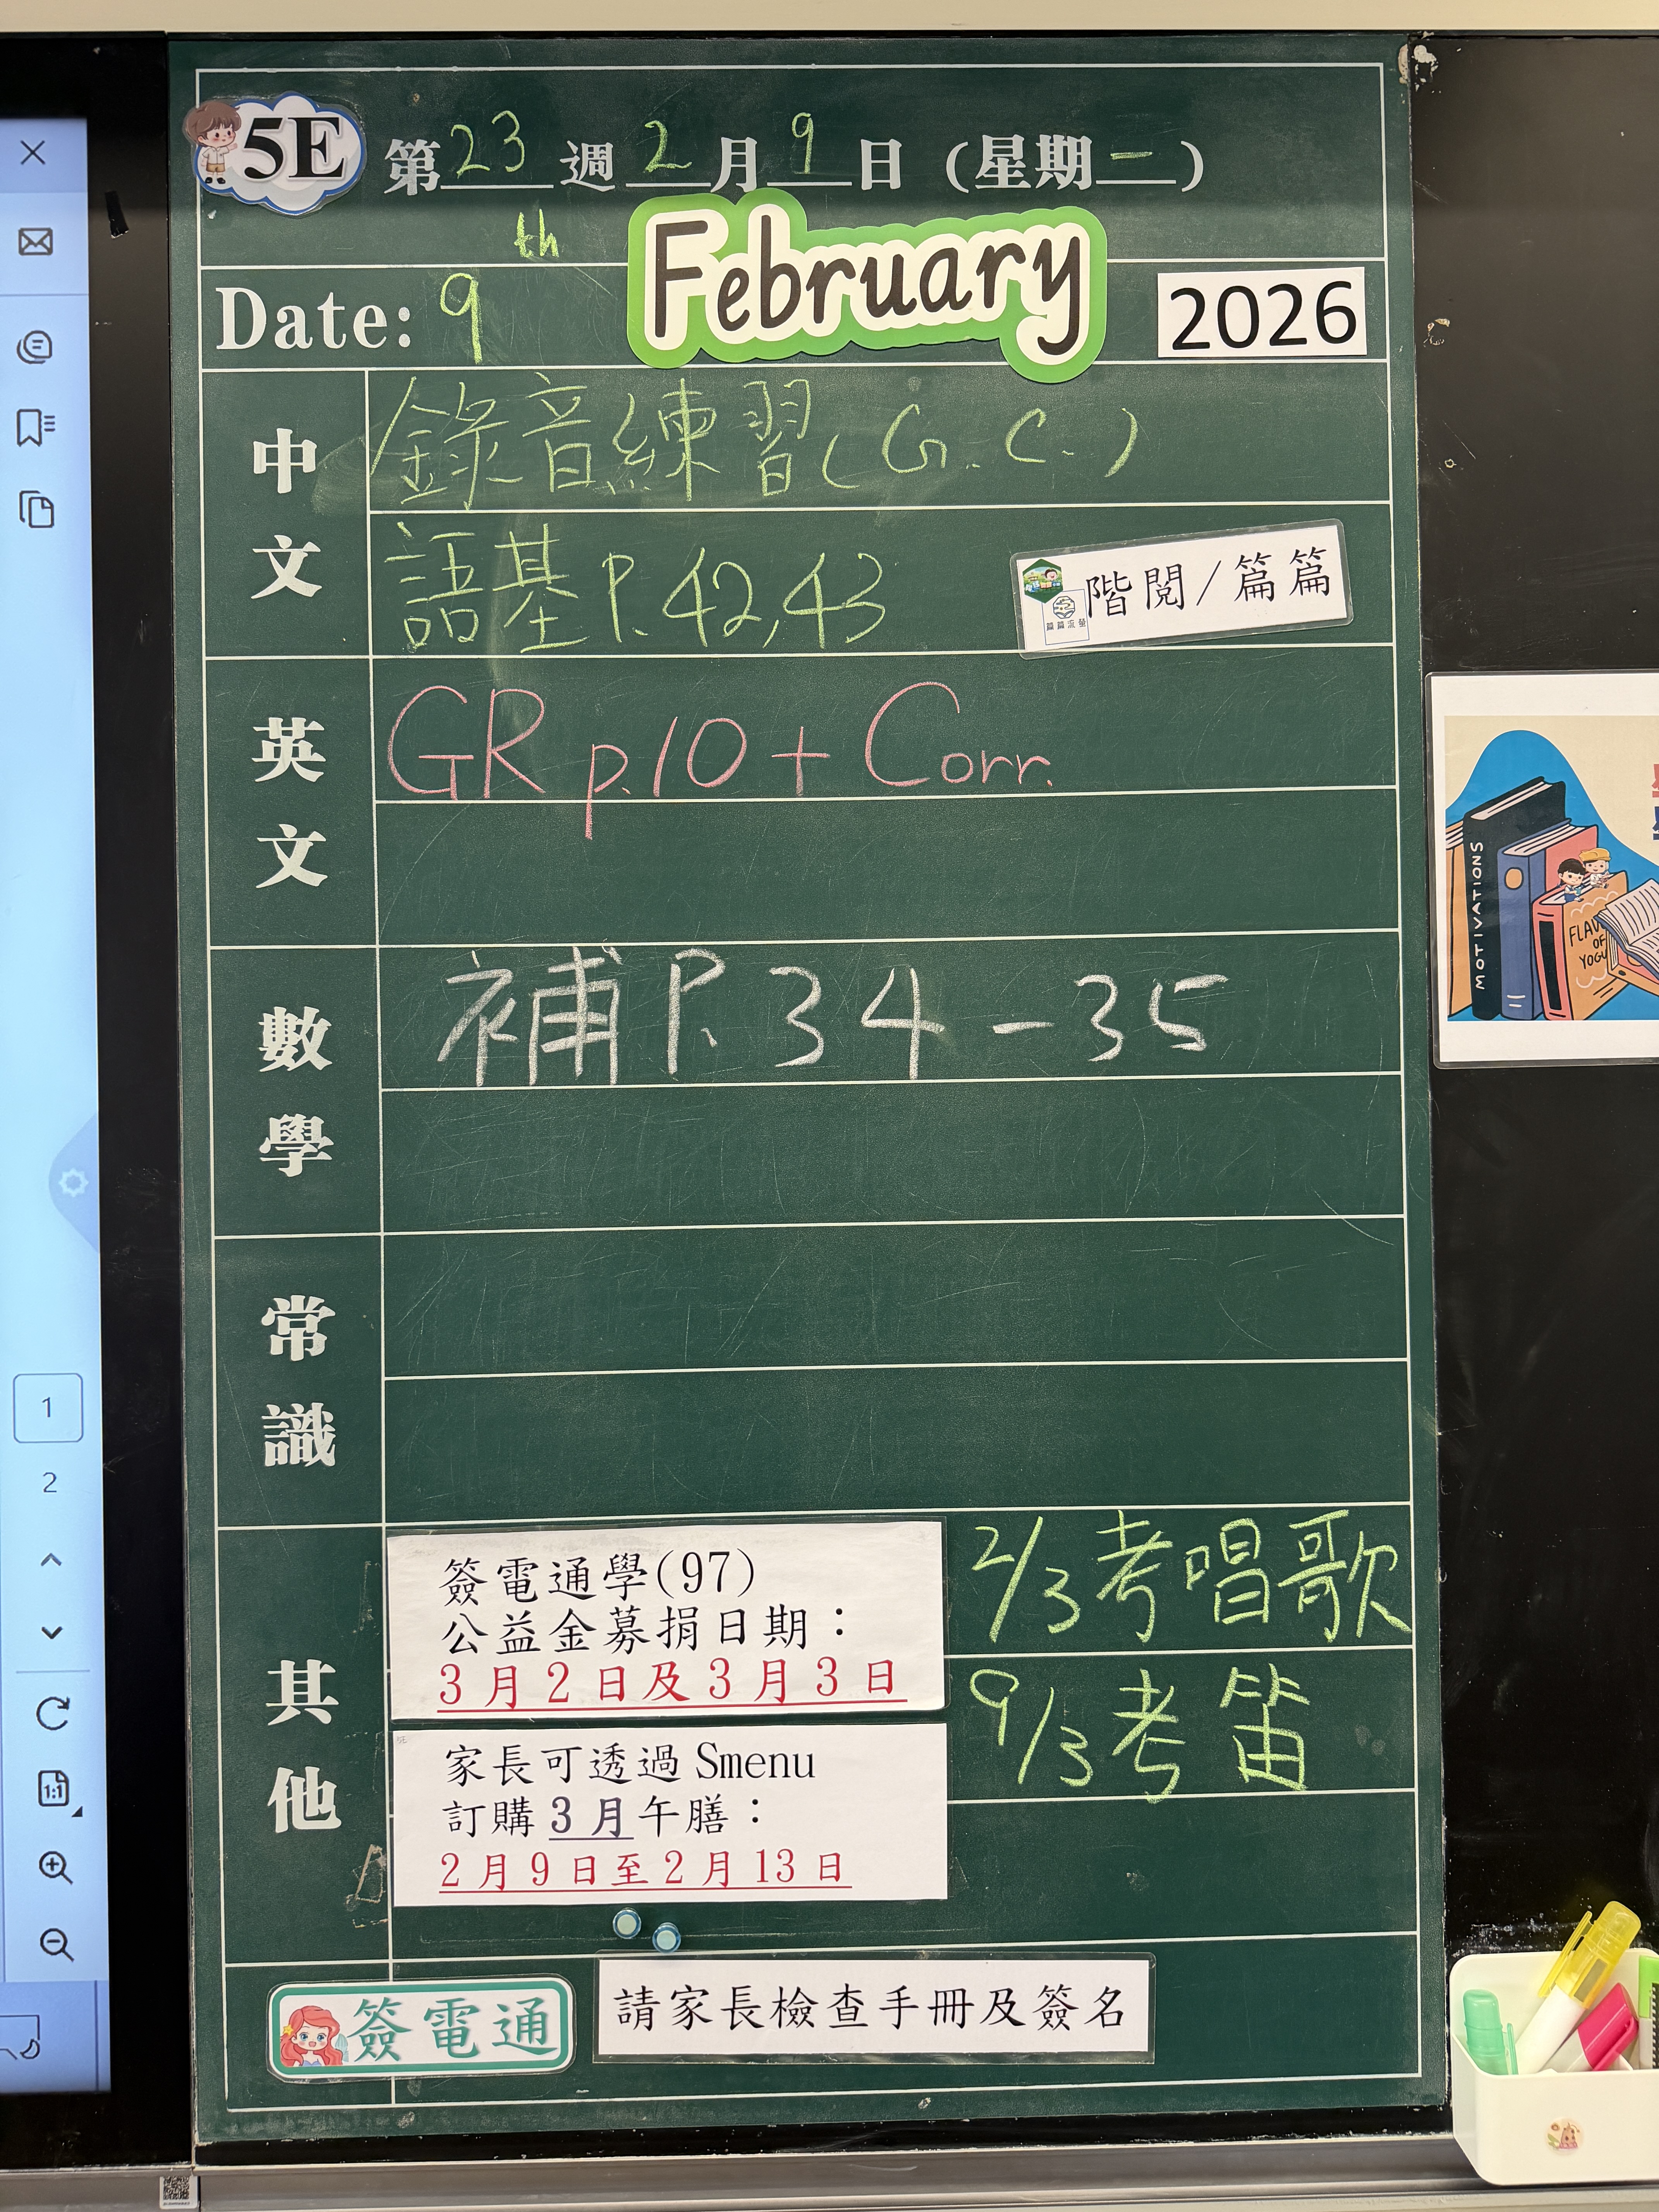 5E 第23週2月9日(星期一)
Date: 9th February 2026
中文
錄音練習(G.C.)
語基P.42,43
階閱/篇篇
篇篇流螢
英文
GR p.10 + Corr.
數學
補P.34-35
常識
其他
簽電通學(97)
公益金募捐日期：
3月2日及3月3日
2/3考唱歌
9/3考笛
家長可透過Smenu
訂購3月午膳：
2月9日至2月13日
簽電通
請家長檢查手冊及簽名
1
2
1:1
MOTIVATIONS
OF